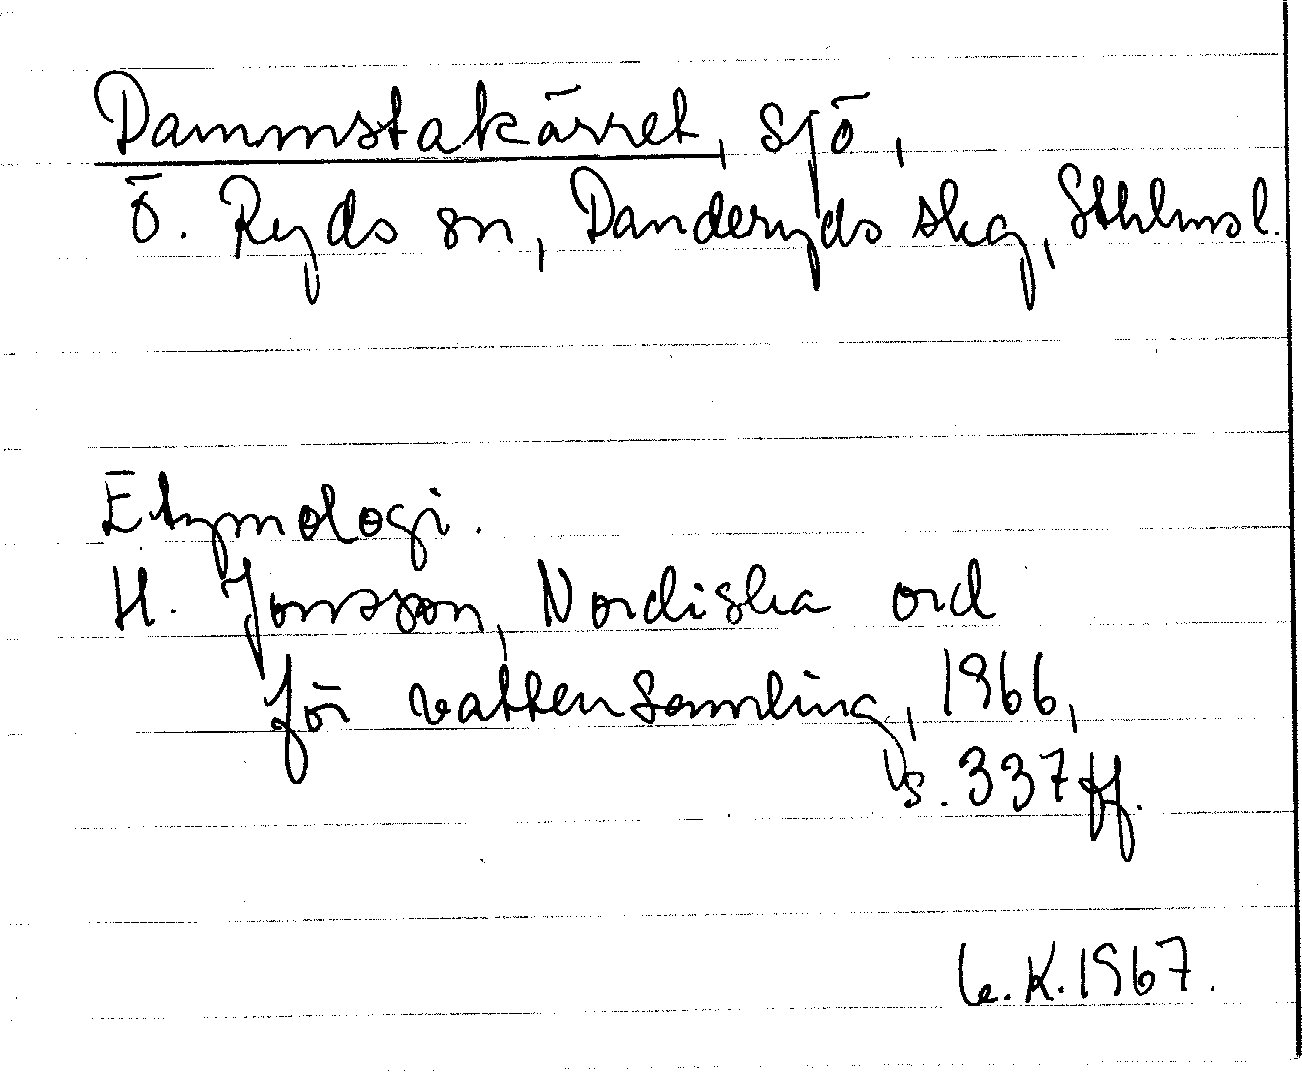 Dammstakärret, sjö,
Ö. Ryds sn, Danderyds skg, Sthlmsl.
Etymologi.
H. Jonsson, Nordiska ord
för vattensamling, 1966,
s. 337 ff.
K. 1967.